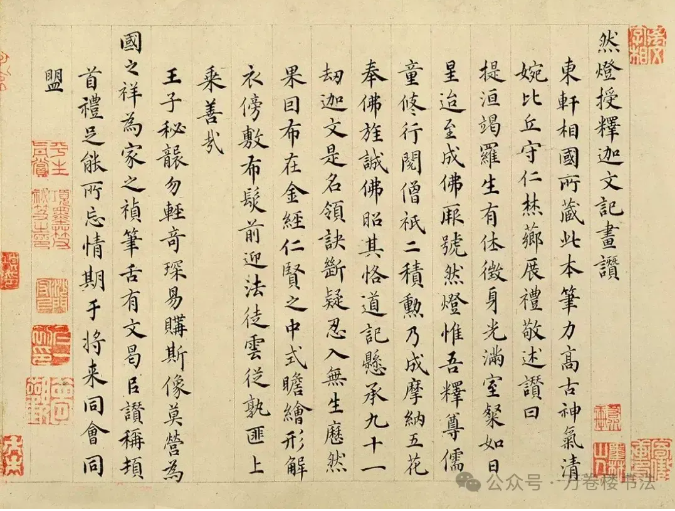 然燈授釋迦文記畫讚
東軒相國所藏此本筆力高古神氣清
婉比丘守仁焚薌展禮敬述讚曰
提洹竭羅生有休徵身光滿室粲如日
星迨至成佛厥號然燈惟吾釋尊儒
童修行閱僧祇二積勳乃成摩納五花
奉佛旌誠佛昭其恪道記懸承九十一
劫迦文是名領訣斷疑忍入無生應然
果因布在金經仁賢之中式瞻繪形解
衣傍敷布髮前迎法徒雲從孰匪上
乘善哉
王子秘襲勿輕奇琛易購斯像莫營為
國之祥為家之禎筆舌有文曷臣讚稱頫
首禮足能所忘情期于將来同會同
盟
公众号·万卷楼书法